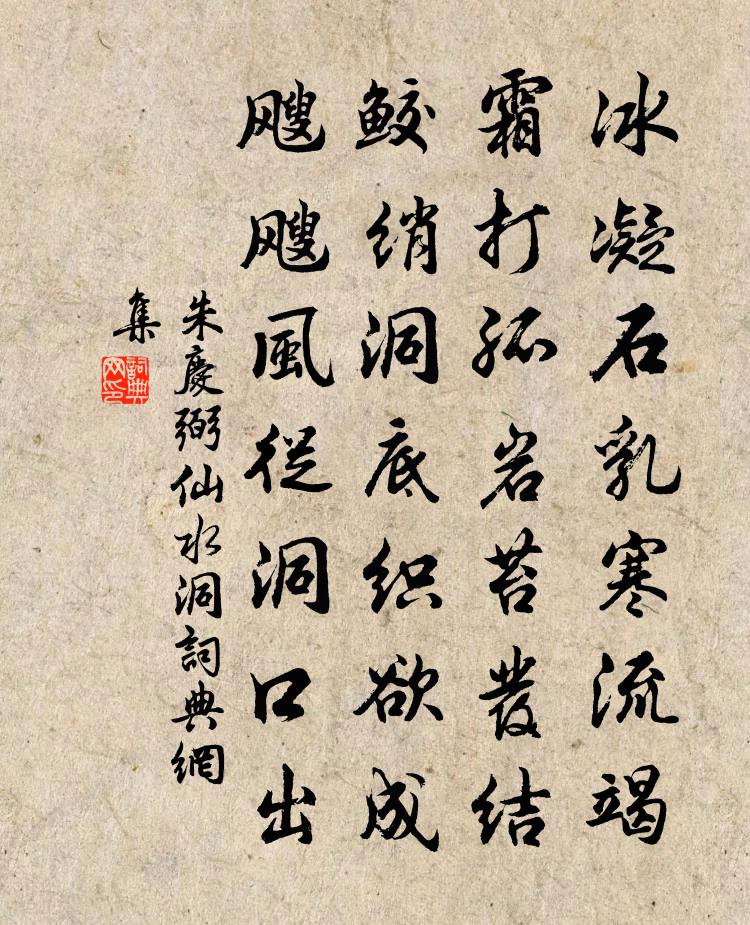 冰凝石乳寒流竭
霜打孤岩苔發结
鲛绡洞底织欲成
飕飕風從洞口出
朱慶弼仙水洞詞典網
集
詞典
网印